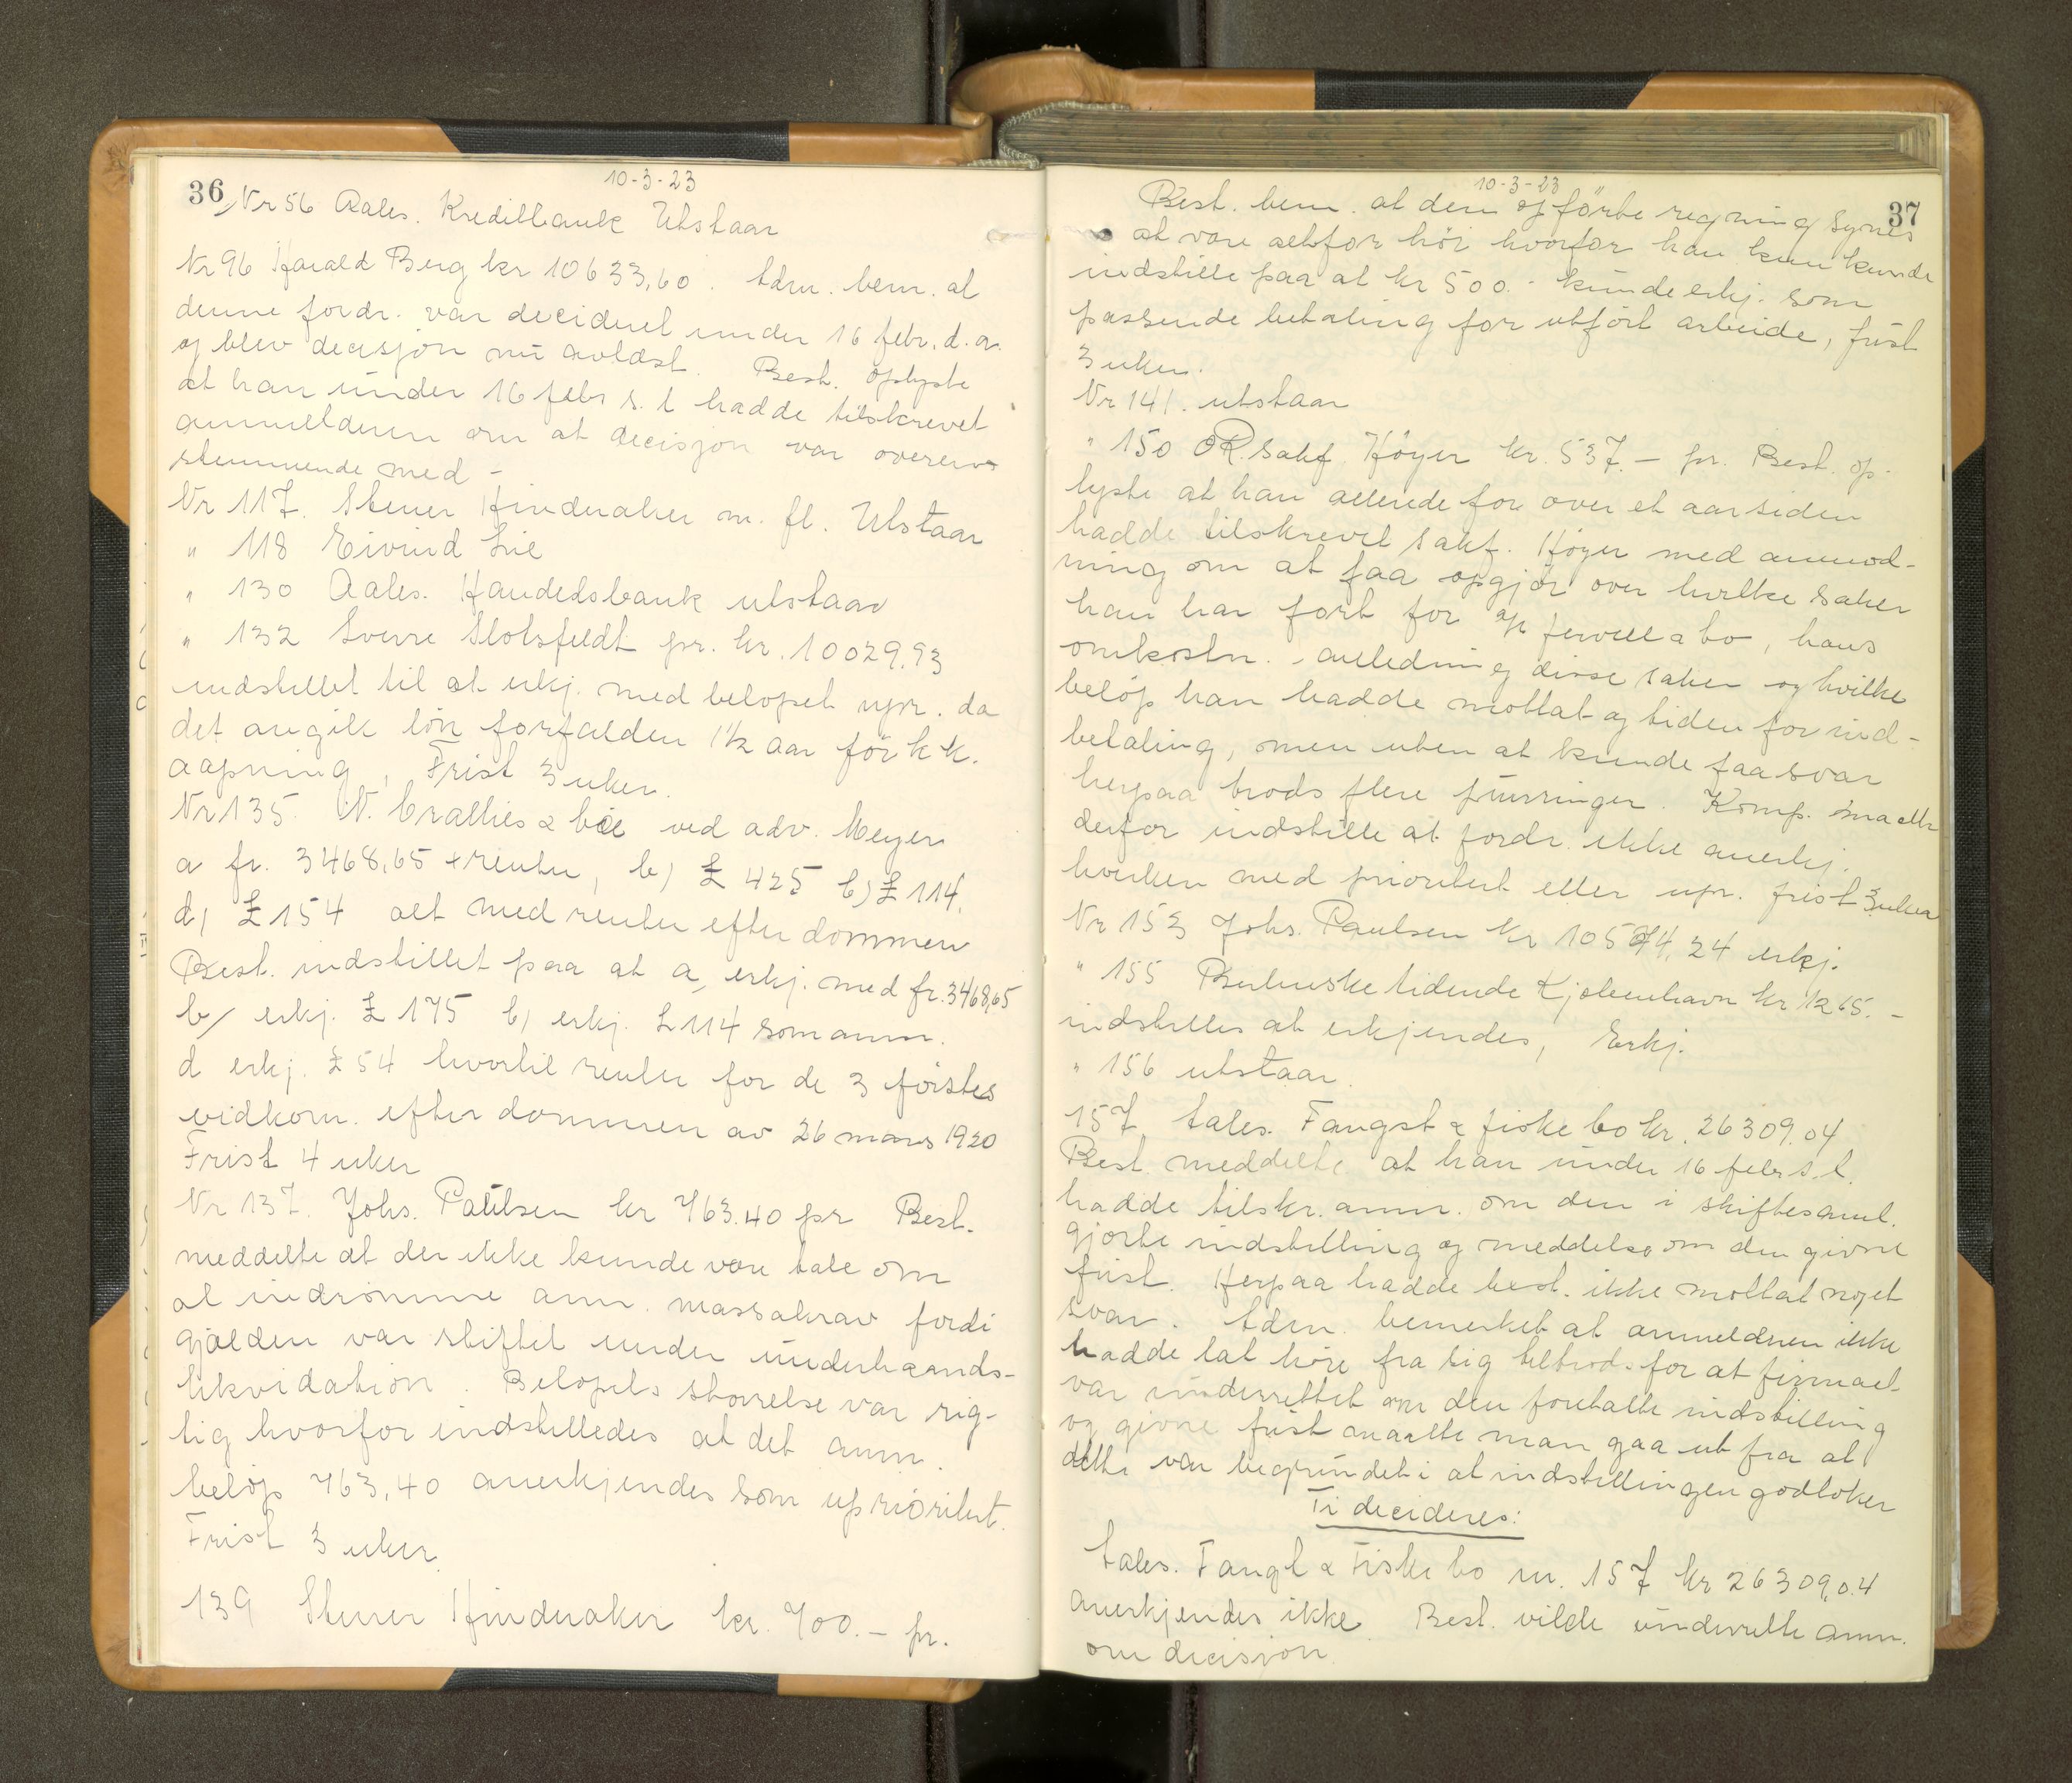 36
10-3-23
Nr 56 Aales. Kreditbank Utstaar
Nr 96 Harald Berg kr 10633,60. Adm. bem. at
denne fordr. var decideret under 16 febr. d.a.
og blev decisjon nu avlæst. Best. oplyste
at han under 16 febr s. l hadde tilskrevet
anmelderen om at decisjon var overens
stemmende med -
Nr 117. Stener Hinderaker m. fl. Utstaar
" 118 Eivind Lie
" 130 Aales. Handelsbank utstaar
" 132 Sverre Slotsfeldt pr. kr. 10029.93
indstillet til at erkj. med beløpet upr. da
det angik løn forfalden 1½ aar før kk.
aapning, Frist 3 uker.
Nr 135. N. & Cie ved adv. Meyer
a fr. 3468,65 + renter, b) £ 425 c) £ 114,
d) £ 154 alt med renter efter dommen
Best. indstillet paa at a, erkj. med fr. 3468,65
b/ erkj. £ 175 c) erkj. £ 114 som anm.
d erkj. £ 54 hvortil renter for de 3 førstes
vidkom. efter dommen av 26 mars 1920
Frist 4 uker
Nr 137. Johs. Paulsen kr 763.40 pr Best.
meddelte at der ikke kunde være tale om
at indrømme anm. massakrav fordi
gjælden var stiftet under underhaands-
likvidation. Beløpets størrelse var rig-
tig hvorfor indstilledes at det anm.
beløp 763,40 anerkjendes som uprioritert.
Frist 3 uker.
139 Stener Hinderaker kr. 700.- pr.
37
10-3-23
Best. bem. at den opførte regning synes
at være altfor høi hvorfor han kun kunde
indstille paa at kr 500.- kunde erkj. som
passende betaling for utført arbeide, frist
3 uker.
Nr 141. utstaar
" 150 OR.sakf. Høyer kr. 537.- pr. Best. op-
lyste at han allerede for over et aar siden
hadde tilskrevet sakf. Høyer med anmod-
ning om at faa opgjør over hvilke saker
han har ført for a/s bo, hans
omkostn. i anledning disse saker og hvilke
beløp han hadde mottat og tiden for ind-
betaling, men uten at kunde faa svar
herpaa trods flere purringer. Komp. maatte
derfor indstille at fordr. ikke anerkj.
hverken med prioritert eller upr. frist 3 uker
Nr 153 Johs. Paulsen kr 10574,24 erkj.
" 155 Berlinske tidende Kjøbenhavn kr 1265.-
indstilles at erkjendes, Erkj.
" 156 utstaar.
157 Aales. Fangst & fiske co kr. 26309.04
Best. meddelte at han under 16 febr s.l.
hadde tilskr. anm. om den i skiftesaml.
gjorte indstilling og meddelse om den givne
frist. Herpaa hadde best. ikke mottat noget
svar. Adm. bemerket at anmelderen ikke
hadde lat høre fra sig tiltrods for at firmaet
var underrettet om den foretatte indstilling
og givne frist maatte man gaa ut fra at
dette var begrundet i at indstillingen godtokes
Ti decideres:
Aales. Fangst & Fiske co nr. 157 kr 26309,04
anerkjendes ikke. Best. vilde underrette anm.
om decisjon.